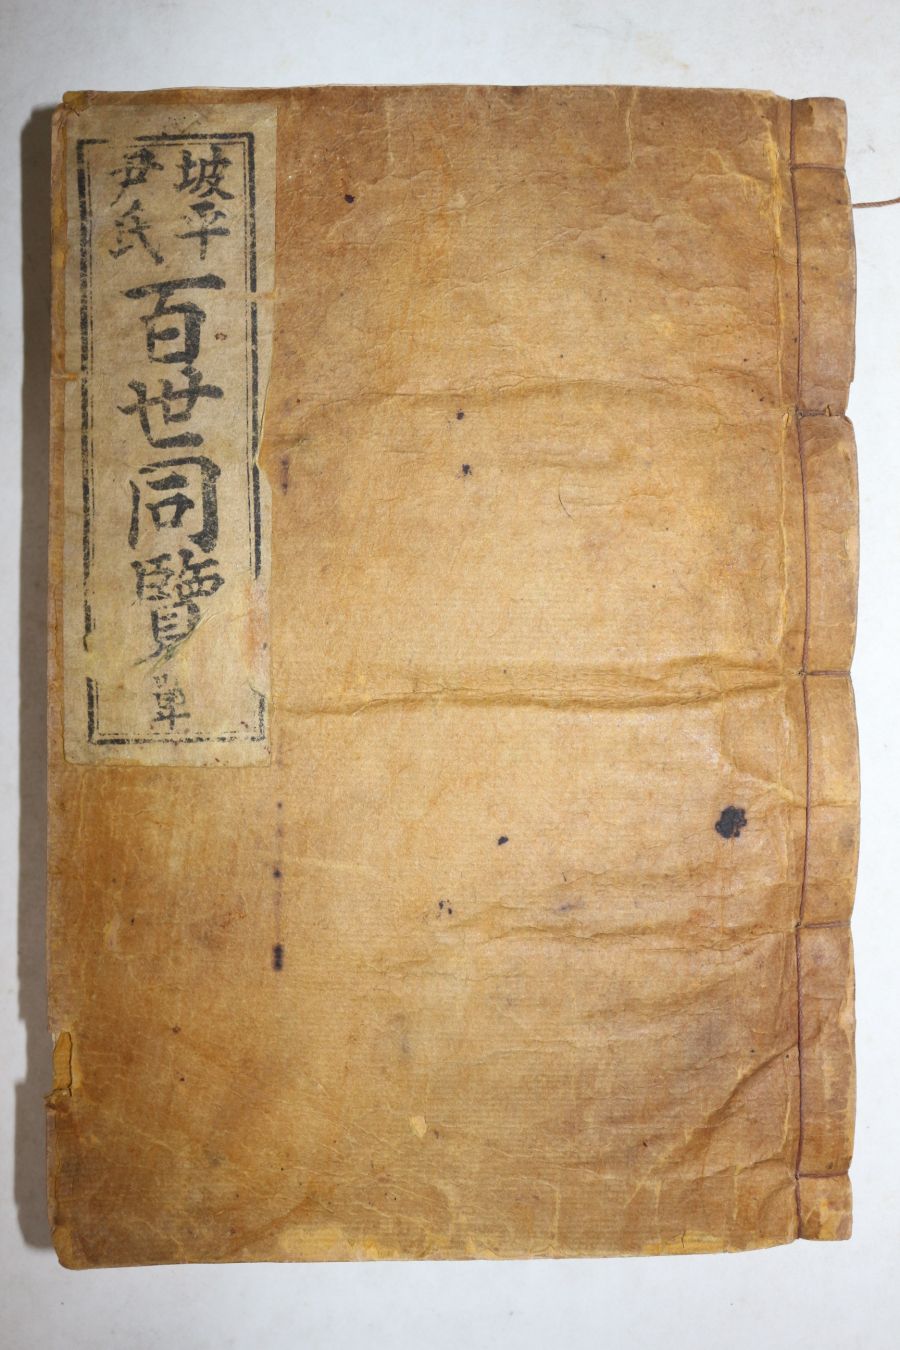 坡平
尹氏
百世同覽 單